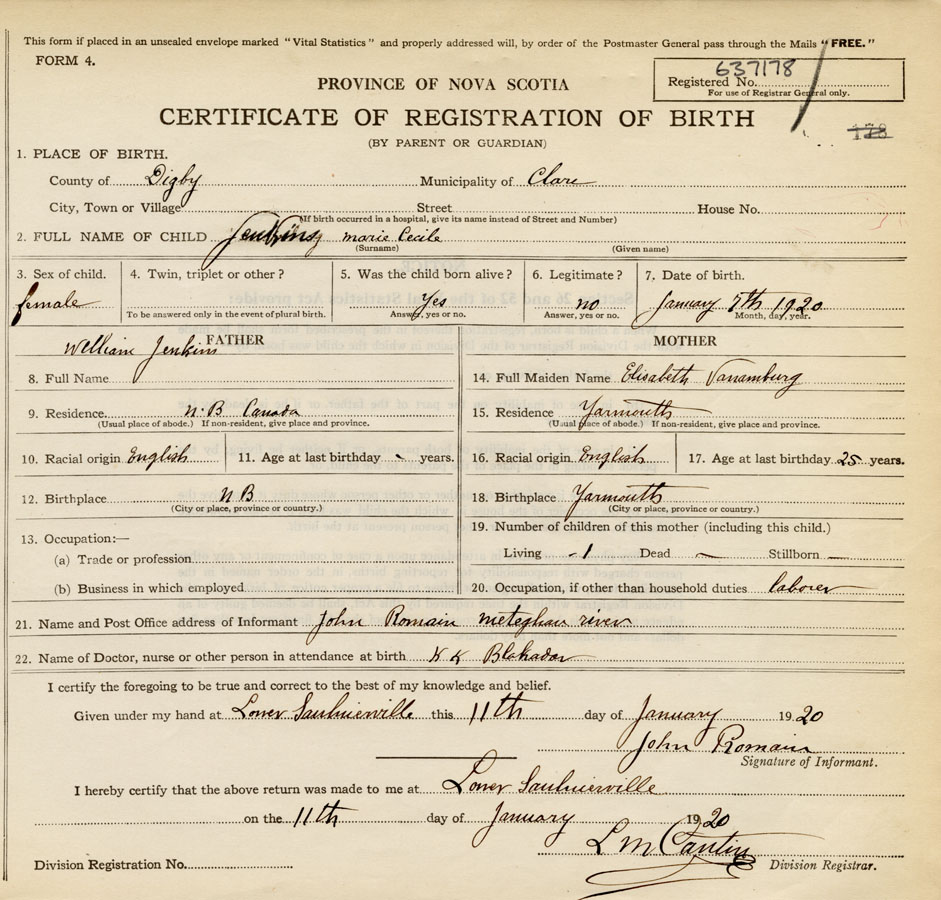 This form if placed in an unsealed envelope marked "Vital Statistics" and properly addressed will, by order of the Postmaster General pass through the Mails "FREE."
FORM 4.
637178
Registered No.
For use of Registrar General only.
PROVINCE OF NOVA SCOTIA
CERTIFICATE OF REGISTRATION OF BIRTH
178
(BY PARENT OR GUARDIAN)
1. PLACE OF BIRTH.
County of Digby Municipality of Clare
City, Town or Village Street House No.
(If birth occurred in a hospital, give its name instead of Street and Number)
2. FULL NAME OF CHILD Jenkins marie Cecile
(Surname) (Given name)
3. Sex of child. 4. Twin, triplet or other? 5. Was the child born alive? 6. Legitimate? 7. Date of birth.
female Yes no January 7th 1920
To be answered only in the event of plural birth. Answer, yes or no. Answer, yes or no. Month, day, year.
FATHER
William Jenkins
8. Full Name
9. Residence N.B Canada
(Usual place of abode.) If non-resident, give place and province.
10. Racial origin English 11. Age at last birthday - years.
12. Birthplace N B
(City or place, province or country.)
13. Occupation:—
(a) Trade or profession
(b) Business in which employed
MOTHER
14. Full Maiden Name Elisabeth Vanamburg
15. Residence Yarmouth
(Usual place of abode.) If non-resident, give place and province.
16. Racial origin English 17. Age at last birthday 25 years.
18. Birthplace Yarmouth
(City or place, province or country.)
19. Number of children of this mother (including this child.)
Living -1 Dead — Stillborn —
20. Occupation, if other than household duties laborer
21. Name and Post Office address of Informant John Romain meteghan river
22. Name of Doctor, nurse or other person in attendance at birth
I certify the foregoing to be true and correct to the best of my knowledge and belief.
Given under my hand at Lower Saulnierville this 11th day of January 1920
John Romain
Signature of Informant.
I hereby certify that the above return was made to me at Lower Saulnierville
on the 11th day of January 1920
L M Cantin
Division Registration No. Division Registrar.